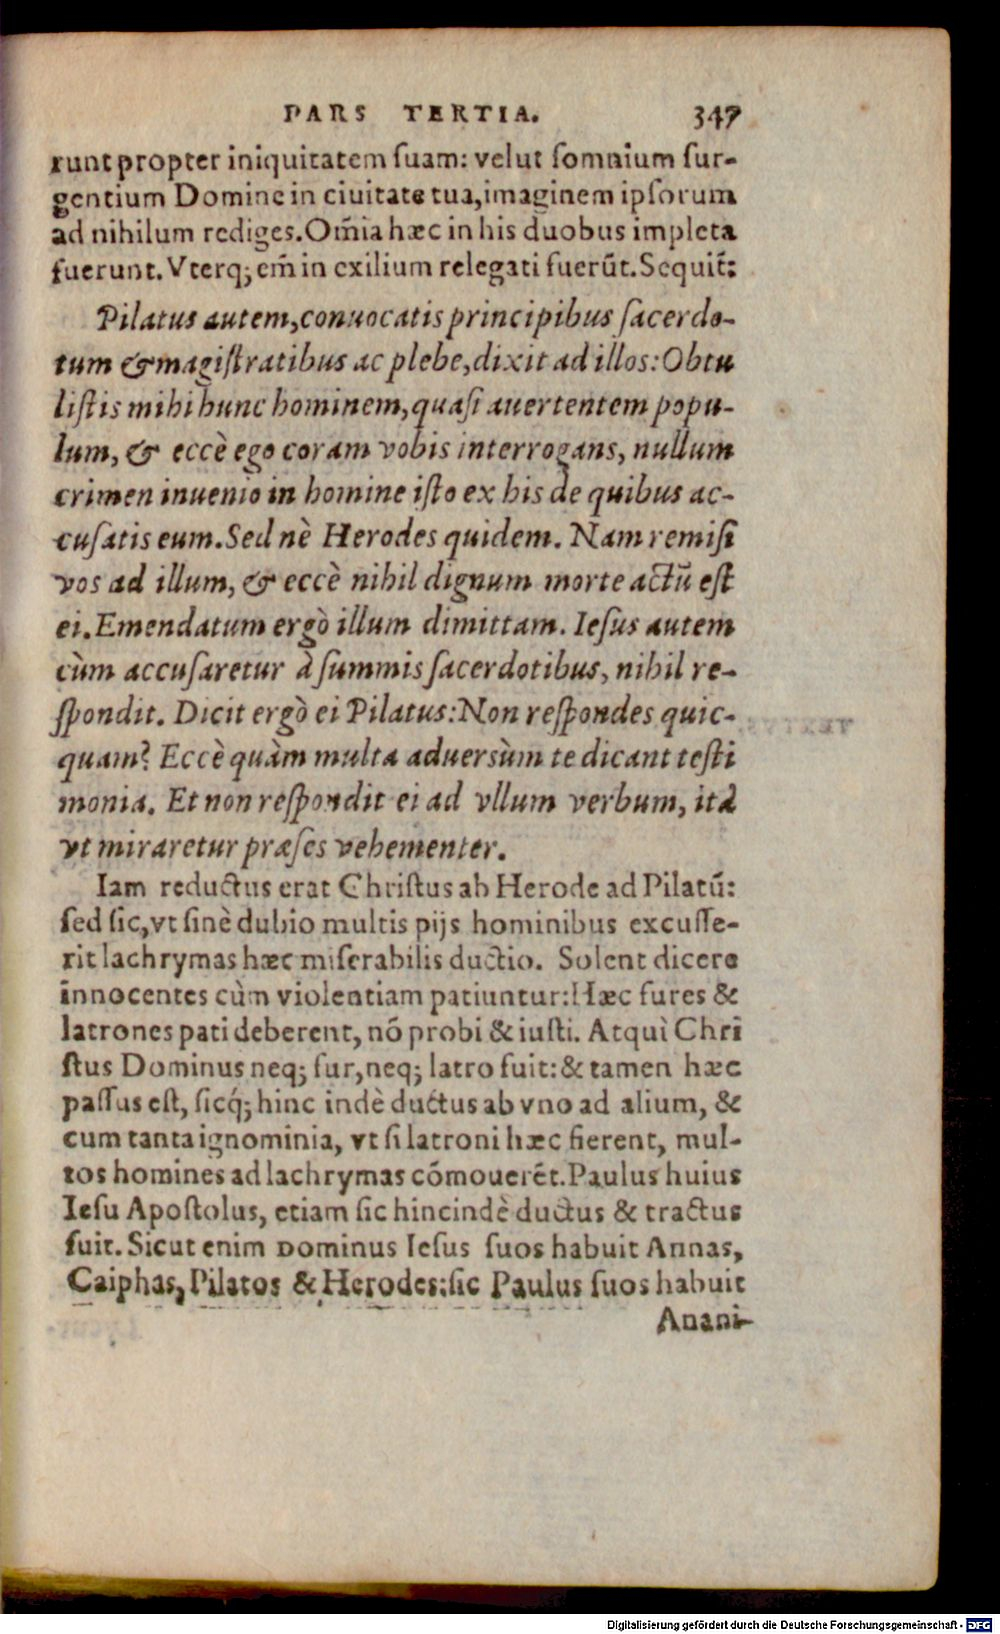 PARS TERTIA. 347
runt propter iniquitatem suam: velut somnium sur-
gentium Domine in ciuitate tua, imaginem ipsorum
ad nihilum rediges. Om̃ia hæc in his duobus impleta
fuerunt. Vterq; em̃ in exilium relegati fuerũt. Sequit̃:
Pilatus autem, conuocatis principibus sacerdo-
tum & magistratibus ac plebe, dixit ad illos: Obtu
listis mihi hunc hominem, quasi auertentem popu-
lum, & eccè ego coram vobis interrogans, nullum
crimen inuenio in homine isto ex his de quibus ac-
cusatis eum. Sed nè Herodes quidem. Nam remisi
vos ad illum, & eccè nihil dignum morte actũ est
ei. Emendatum ergò illum dimittam. Iesus autem
cùm accusaretur à summis sacerdotibus, nihil re-
spondit. Dicit ergò ei Pilatus: Non respondes quic-
quam? Eccè quàm multa aduersùm te dicant testi
monia. Et non respondit ei ad vllum verbum, ità
vt miraretur præses vehementer.
Iam reductus erat Christus ab Herode ad Pilatũ:
sed sic, vt sinè dubio multis pijs hominibus excusse-
rit lachrymas hæc miserabilis ductio. Solent dicere
innocentes cùm violentiam patiuntur: Hæc fures &
latrones pati deberent, nõ probi & iusti. Atquì Chri
stus Dominus neq; fur, neq; latro fuit: & tamen hæc
passus est, sicq́; hinc indè ductus ab vno ad alium, &
cum tanta ignominia, vt si latroni hæc fierent, mul-
tos homines ad lachrymas cõmouerẽt. Paulus huius
Iesu Apostolus, etiam sic hincindè ductus & tractus
fuit. Sicut enim Dominus Iesus suos habuit Annas,
Caiphas, Pilatos & Herodes: sic Paulus suos habuit
Anani-
Digitalisierung gefördert durch die Deutsche Forschungsgemeinschaft - DFG